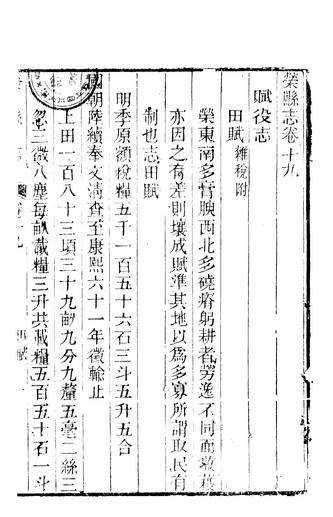 榮縣志卷十九
賦役志
田賦 雜稅附
榮東南多膏腴西北多磽瘠躬耕者勞逸不同而收穫
亦因之有差則壤成賦準其地以為多寡所謂取民有
制也志田賦
明季原額稅糧五千一百五十六石三斗五升五合
國朝陸續奉文清查至康熙六十一年徵輸止
上田一百八十三頃三十九畝九分九釐五毫二絲三
忽三微八塵每畝載糧三升共載糧五百五十石一斗